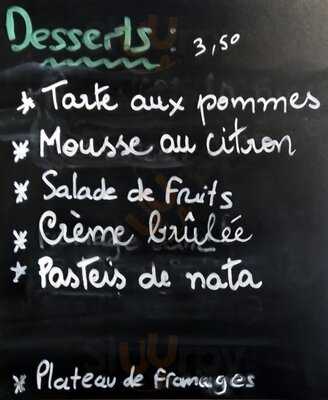 Desserts : 3,50
* Tarte aux pommes
* Mousse au citron
* Salade de Fruits
* Crème brûlée
* Pasteis de nata
* Plateau de Fromages